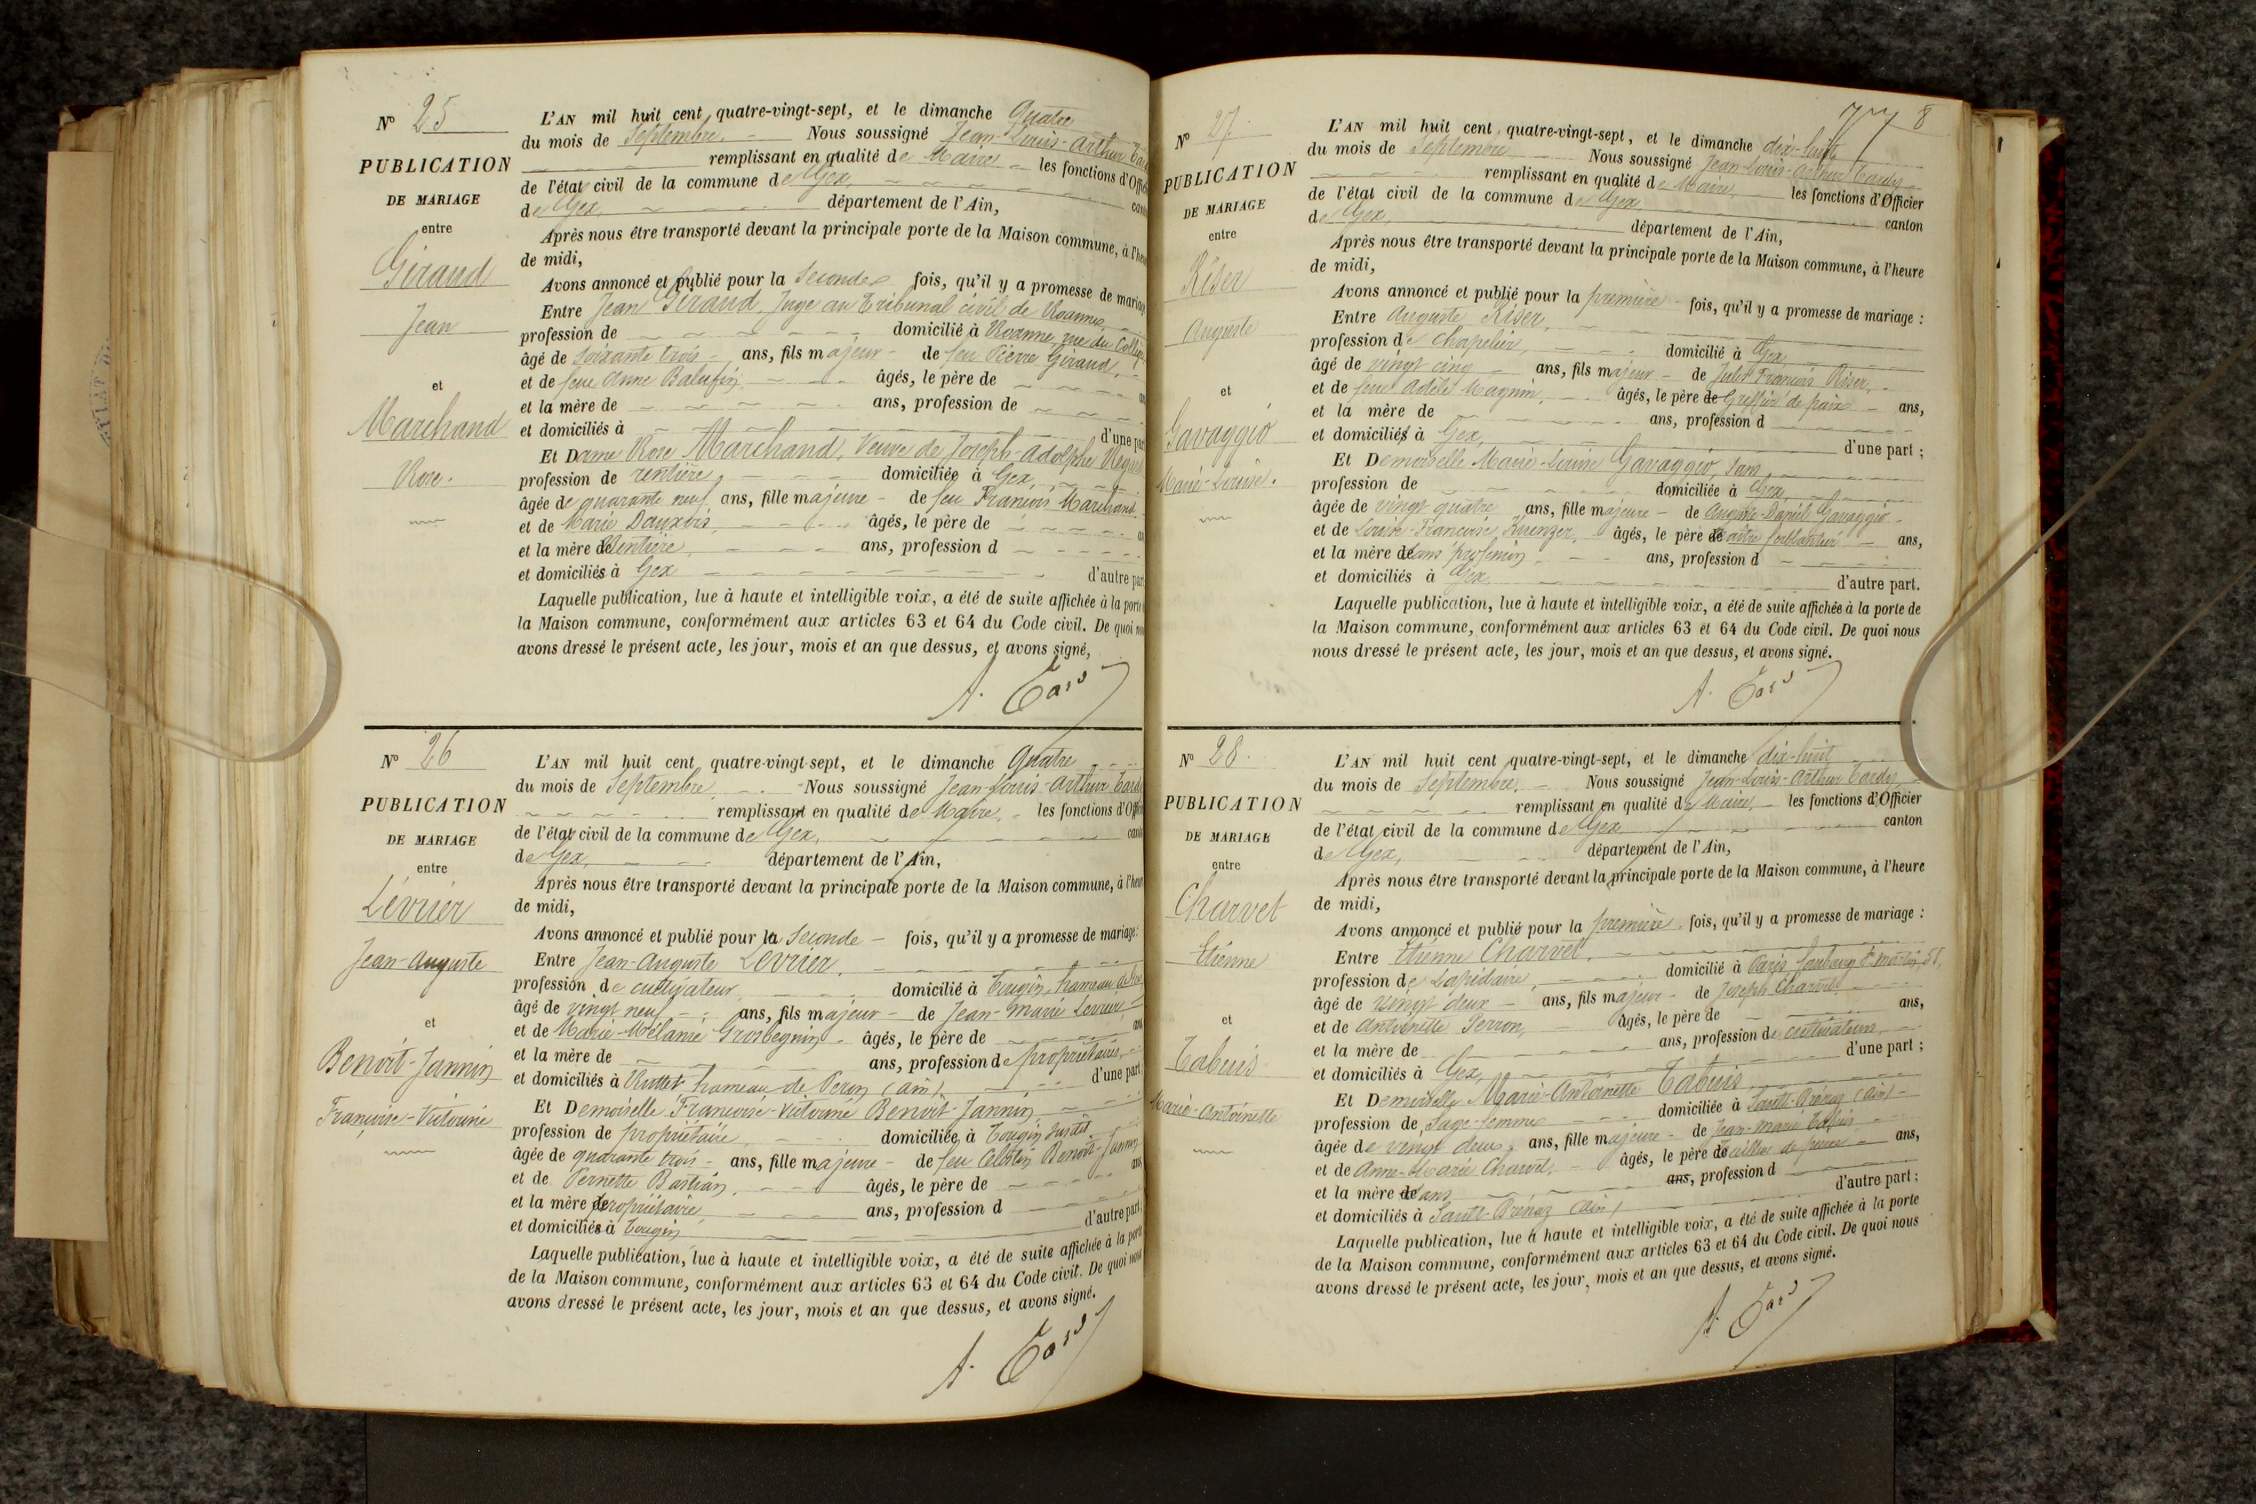 N° 25
PUBLICATION
DE MARIAGE
entre
Giraud
Jean
et
Marchand
Rose.
L'AN mil huit cent quatre-vingt-sept, et le dimanche Quatre
du mois de Septembre. Nous soussigné Jean-Louis-Arthur
remplissant en qualité de Maire les fonctions d'Offi
de l'état civil de la commune de Gex,
de Gex, département de l'Ain,
Après nous être transporté devant la principale porte de la Maison commune, à l'heu
de midi,
Avons annoncé et publié pour la Seconde fois, qu'il y a promesse de mariage
Entre Jean Giraud, Juge au Tribunal civil de Roanne,
profession de domicilié à Roanne, rue du Collège
âgé de Soixante trois ans, fils majeur de feu Pierre Giraud,
et de feue Anne âgés, le père de
et la mère de ans, profession de
et domiciliés à d'une part
Et Dame Rose Marchand, Veuve de Joseph-Adolphe
profession de rentière, domiciliée à Gex,
âgée de quarante neuf ans, fille majeure de feu François Marchand
et de Marie âgés, le père de
et la mère de Rentière, ans, profession d
et domiciliés à Gex d'autre part
Laquelle publication, lue à haute et intelligible voix, a été de suite affichée à la porte
la Maison commune, conformément aux articles 63 et 64 du Code civil. De quoi nous
avons dressé le présent acte, les jour, mois et an que dessus, et avons signé,
A. Tardy
N° 26
PUBLICATION
DE MARIAGE
entre
Lévrier
Jean-Auguste
et
Benoit-Jannin
Françoise-Victorine
L'AN mil huit cent quatre-vingt-sept, et le dimanche Quatre
du mois de Septembre Nous soussigné Jean-Louis-Arthur Tardy
remplissant en qualité de Maire, les fonctions d'Offi
de l'état civil de la commune de Gex,
de Gex, département de l'Ain,
Après nous être transporté devant la principale porte de la Maison commune, à l'heu
de midi,
Avons annoncé et publié pour la Seconde fois, qu'il y a promesse de mariage:
Entre Jean-Auguste Lévrier,
profession de cultivateur domicilié à Tougin, hameau de Gex
âgé de vingt neuf ans, fils majeur de Jean-Marie Levrier,
et de Marie-Mélanie âgés, le père de
et la mère de ans, profession de propriétaires,
et domiciliés à hameau de Peron (Ain) d'une part
Et Demoiselle Françoise-Victorine Benoit-Jannin
profession de propriétaire domiciliée à Tougin
âgée de quarante trois ans, fille majeure de feu Célestin Benoit-Jannin
et de Pernette Bastian, âgés, le père de
et la mère propriétaire, ans, profession d
et domiciliés à Tougin d'autre part,
Laquelle publication, lue à haute et intelligible voix, a été de suite affichée à la porte
de la Maison commune, conformément aux articles 63 et 64 du Code civil. De quoi nous
avons dressé le présent acte, les jour, mois et an que dessus, et avons signé.
A. Tardy
8
N° 27.
PUBLICATION
DE MARIAGE
entre
Riser
Auguste
et
Gavaggio
Marie-Louise.
L'AN mil huit cent quatre-vingt-sept, et le dimanche dix-huit
du mois de Septembre Nous soussigné Jean-Louis-Arthur Tardy
remplissant en qualité de Maire, les fonctions d'Officier
de l'état civil de la commune de Gex canton
de Gex, département de l'Ain,
Après nous être transporté devant la principale porte de la Maison commune, à l'heure
de midi,
Avons annoncé et publié pour la première fois, qu'il y a promesse de mariage :
Entre Auguste Riser,
profession de Chapelier, domicilié à Gex
âgé de vingt cinq ans, fils majeur de Jules François Riser,
et de feue Adèle Magnin, âgés, le père de Greffier de paix ans,
et la mère de ans, profession d
et domiciliés à Gex, d'une part ;
Et Demoiselle Marie-Louise Gavaggio, sans
profession de domiciliée à Gex
âgée de vingt quatre ans, fille majeure de Auguste-Daniel Gavaggio
et de Louise-Françoise âgés, le père de maître ferblantier ans,
et la mère de sans profession ans, profession d
et domiciliés à Gex d'autre part.
Laquelle publication, lue à haute et intelligible voix, a été de suite affichée à la porte de
la Maison commune, conformément aux articles 63 et 64 du Code civil. De quoi nous
nous dressé le présent acte, les jour, mois et an que dessus, et avons signé.
A. Tardy
N° 28.
PUBLICATION
DE MARIAGE
entre
Charvet
Etienne
et
Tabuis
Marie-Antoinette
L'AN mil huit cent quatre-vingt-sept, et le dimanche dix-huit
du mois de Septembre. Nous soussigné Jean-Louis-Arthur Tardy,
remplissant en qualité de Maire, les fonctions d'Officier
de l'état civil de la commune de Gex canton
de Gex, département de l'Ain,
Après nous être transporté devant la principale porte de la Maison commune, à l'heure
de midi,
Avons annoncé et publié pour la première fois, qu'il y a promesse de mariage :
Entre Etienne Charvet,
profession de Lapidaire, domicilié à Paris faubourg St Martin
âgé de Vingt deux ans, fils majeur de Joseph Charvet
et de Antoinette Perron, âgés, le père de ans,
et la mère de ans, profession de cultivateurs
et domiciliés à Gex, d'une part ;
Et Demoiselle Marie-Antoinette Tabuis
profession de Sage-femme domiciliée à (Ain)
âgée de vingt deux ans, fille majeure de Jean-Marie Tabuis
et de Anne-Marie Charvet, âgés, le père de Tailleur de pierre ans,
et la mère de sans ans, profession d
et domiciliés à (Ain) d'autre part ;
Laquelle publication, lue à haute et intelligible voix, a été de suite affichée à la porte
de la Maison commune, conformément aux articles 63 et 64 du Code civil. De quoi nous
avons dressé le présent acte, les jour, mois et an que dessus, et avons signé.
A. Tardy